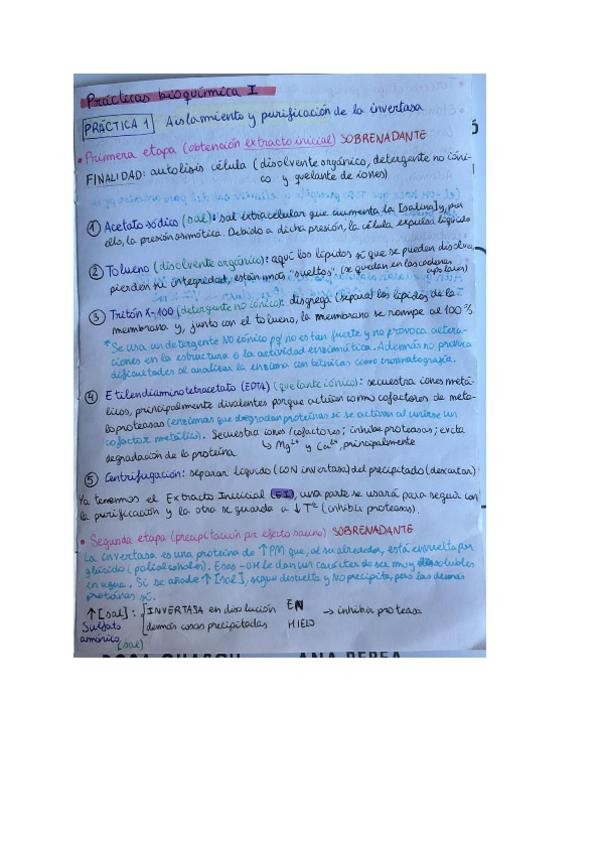 Prácticas bioquímica I
PRÁCTICA 1 Aislamiento y purificación de la invertasa
• Primera etapa (obtención extracto inicial) SOBRENADANTE
FINALIDAD: autolisis célula (disolvente orgánico, detergente no iónico
y quelante de iones)
① Acetato sódico (sal): sal extracelular que aumenta la [salina] y, por
ello, la presión osmótica. Debido a dicha presión, la célula expulsa líquido
② Tolueno (disolvente orgánico): aquí los lípidos sí que se pueden disolver,
pierden su integridad, están más "sueltos". (se quedan en las cadenas
apolares)
③ Tritón X-100 (detergente no iónico): disgrega (separa) los lípidos de la
membrana y, junto con el tolueno, la membrana se rompe al 100%.
*Se usa un detergente NO iónico pq no es tan fuerte y no provoca altera-
ciones en la estructura o la actividad enzimática. Además no provoca
dificultades al analizar la enzima con técnicas como cromatografía.
④ Etilendiaminotetracetato (EDTA) (quelante iónico): secuestra iones metá-
licos, principalmente divalentes porque actúan como cofactores de meta-
loproteasas (enzimas que degradan proteínas si se activan al unirse un
cofactor metálico). Secuestra iones/cofactores; inhibe proteasas; evita
degradación de la proteína ↳ Mg²⁺ y Ca²⁺, principalmente
⑤ Centrifugación: separar líquido (CON invertasa) del precipitado (descartar)
Ya tenemos el Extracto Inicial (EI), una parte se usará para seguir con
la purificación y la otra se guarda a ↓Tª (inhibir proteasas).
• Segunda etapa (precipitación por efecto salino) SOBRENADANTE
La invertasa es una proteína de ↑PM que, a su alrededor, está envuelta por
glúcido (polialcoholes). Esos -OH le dan un carácter de ser muy solubles
en agua. Si se añade ↑[sal], sigue disuelta y NO precipita, pero las demás
proteínas sí.
↑[sal]: INVERTASA en disolución EN → inhibir proteasa
Sulfato demás cosas precipitadas HIELO
amónico
(sal)